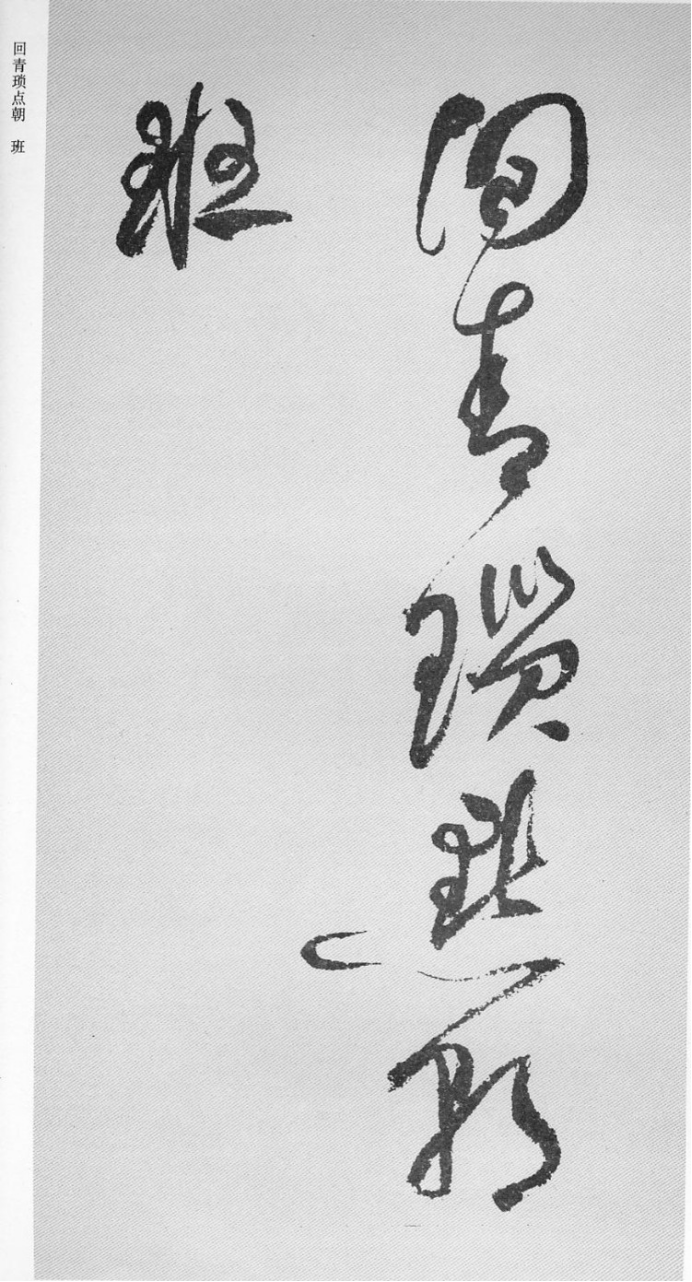 回青瑣點朝
班
回青琐点朝 班